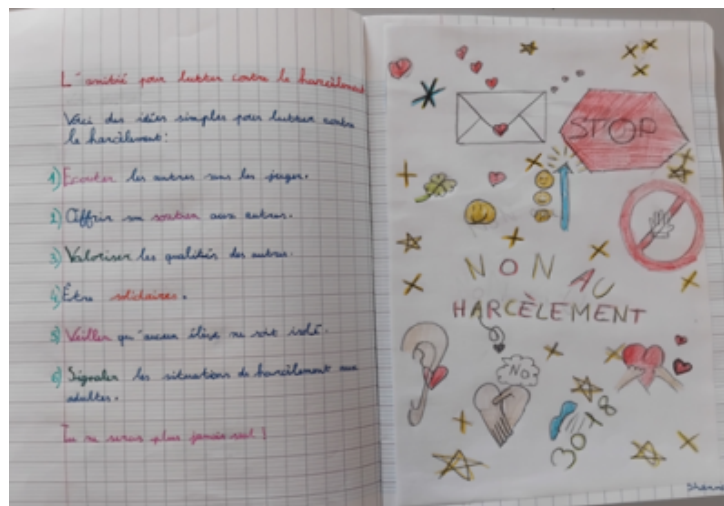 L'amitié pour lutter contre le harcèlement
Voici des idées simples pour lutter contre
le harcèlement :
1) Ecouter les autres sans les juger.
2) Offrir son soutien aux autres.
3) Valoriser les qualités des autres.
4) Être solidaires.
5) Veiller qu'aucun élève ne soit isolé.
6) Signaler les situations de harcèlement aux
adultes.
Tu ne seras plus jamais seul !
STOP
NON AU
HARCÈLEMENT
NO
3018